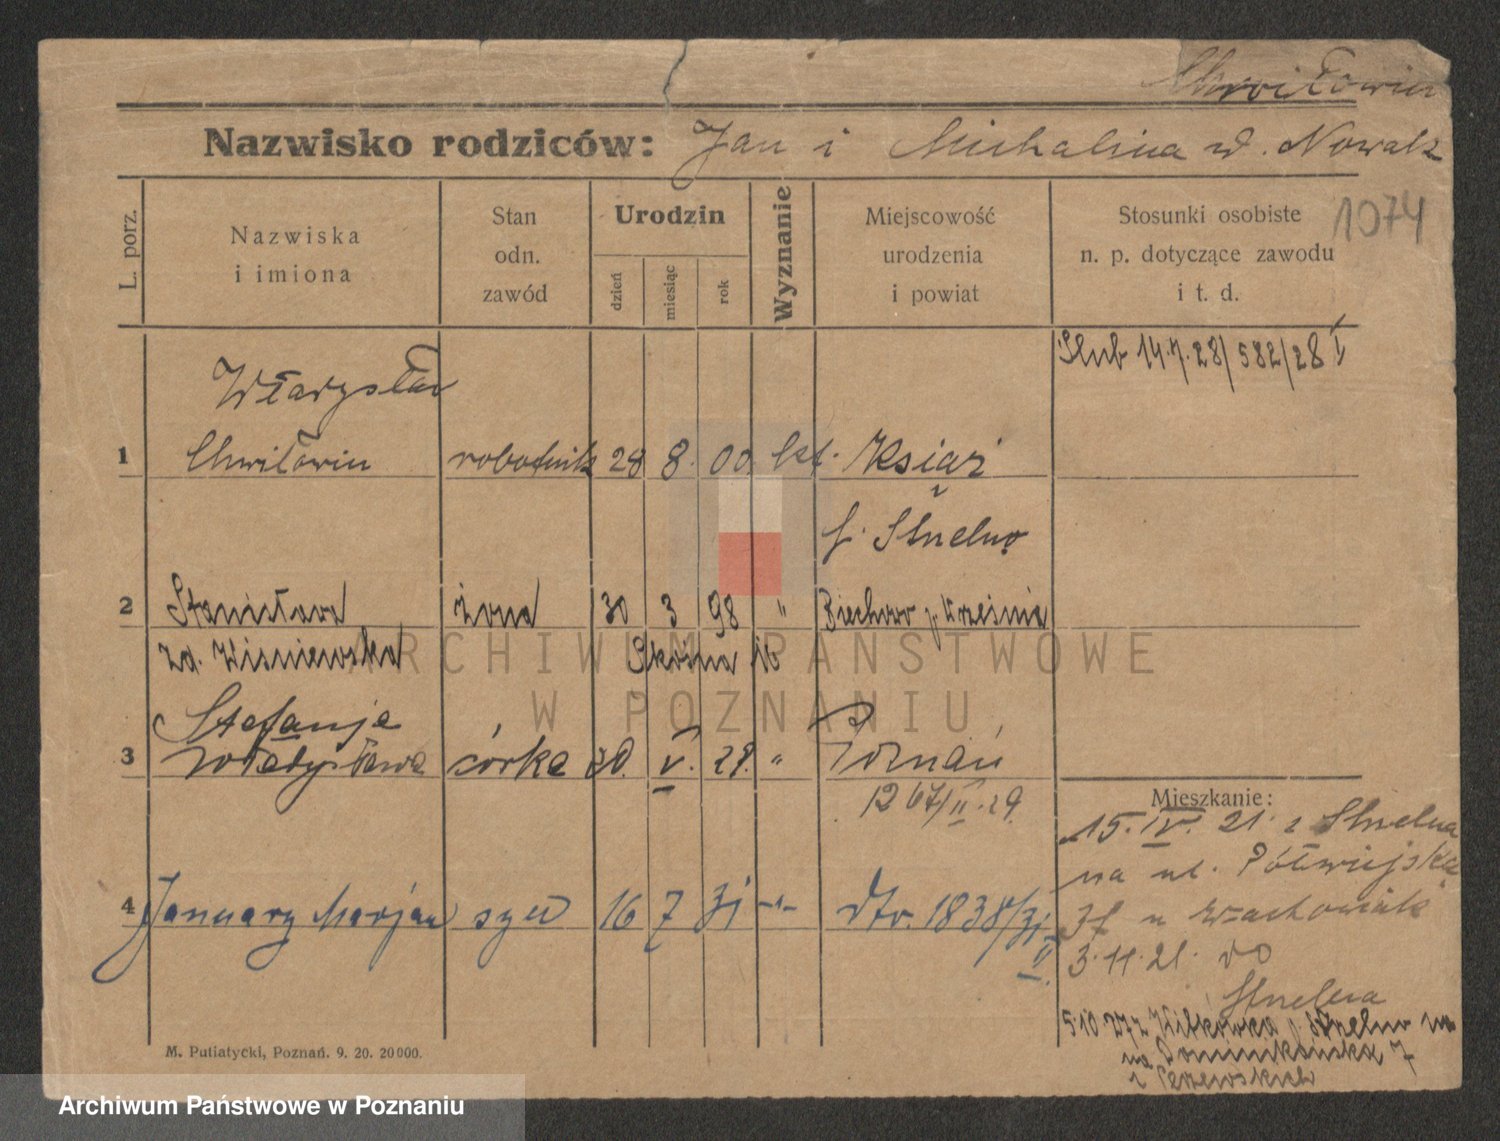 Chwiłowin
Nazwisko rodziców: Jan i Michalina d. Nowak
1074
L. porz.
Nazwiska
i imiona
Stan
odn.
zawód
Urodzin
dzień
miesiąc
rok
Wyznanie
Miejscowość
urodzenia
i powiat
Stosunki osobiste
n. p. dotyczące zawodu
i t. d.
Ślub 14.7.28/582/28 I
Władysław
1 Chwiłowin robotnik 28 8. 00 kat. Książ
p. Strzelno
2 Stanisława żona 30 3 98 " Biechowo p. Września
zd. Wiśniewska Skośna 16
Stefanja
3 Władysława córka 20. V. 29. " Poznań
1267/II.29.
4 January Marjan syn 16 7 31 -"- dto. 1838/31
II
Mieszkanie:
15. IV. 21. z Strzelna
na ul. Półwiejska
37 u
3.11.21. do
Strzelna
5.10.27 z p. Strzelno
na Dominikańska 7
M. Putiatycki, Poznań. 9. 20. 20000.
ARCHIWUM PAŃSTWOWE
W POZNANIU
Archiwum Państwowe w Poznaniu